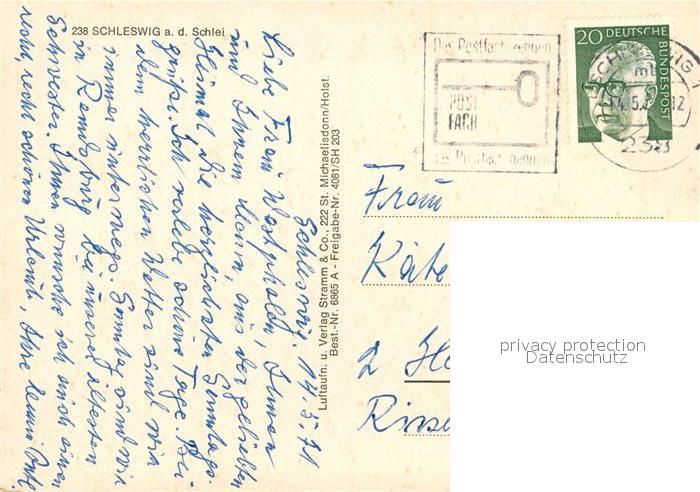 238 SCHLESWIG a. d. Schlei
Schleswig, 14.5.71
Liebe Frau Westphalen, Ihnen
und Ihrem Mann, aus der geliebten
Heimat die herzlichsten Sonntags-
grüße. Ich verlebe schöne Tage. Bei
dem herrlichen Wetter sind wir
immer unterwegs. Sonntag sind wir
in Rendsburg bei unserer ältesten
Schwester. Ihnen wünsche ich auch einen
recht schönen Urlaub, Ihre
Luftaufn. u. Verlag Stramm & Co., 222 St. Michaelisdonn/Holst.
Best.-Nr. 6865 A - Freigabe-Nr. 4081/SH 203
Das Postfach
POST
FACH
20 DEUTSCHE
BUNDESPOST
SCHLESWIG
238
Frau
Käte
2
privacy protection
Datenschutz